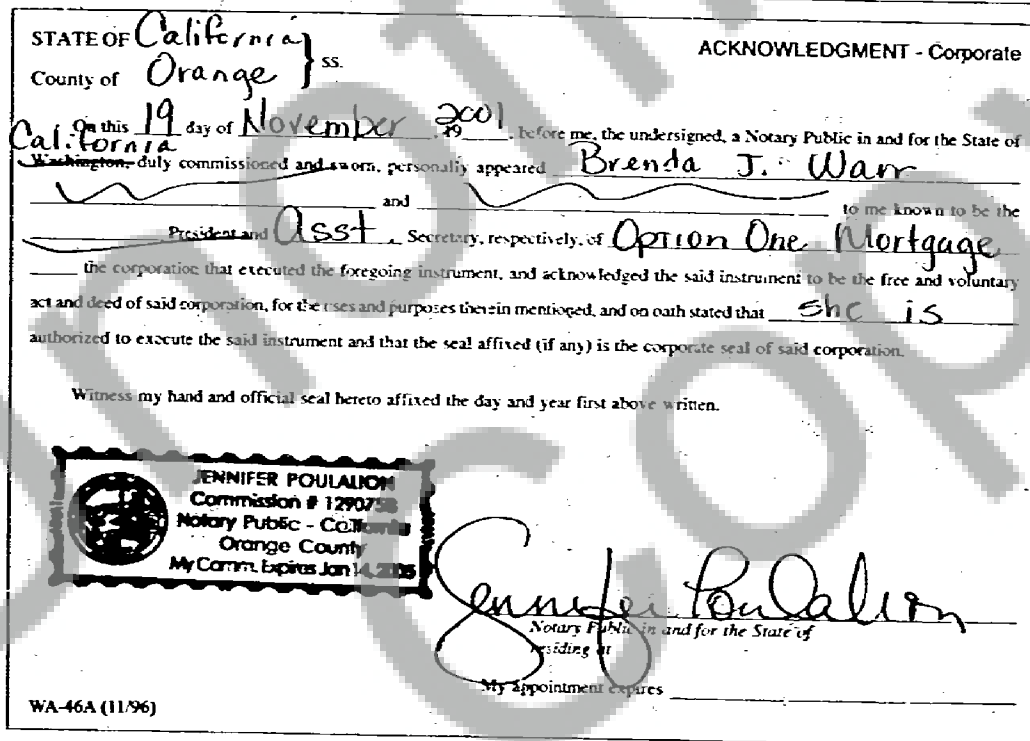 STATE OF California } ss.
ACKNOWLEDGMENT - Corporate
County of Orange
On this 19 day of November 2001, 19 before me, the undersigned, a Notary Public in and for the State of
California
Washington, duly commissioned and sworn, personally appeared Brenda J. Warr
and to me known to be the
President and Asst. Secretary, respectively, of Option One Mortgage
the corporation that executed the foregoing instrument, and acknowledged the said instrument to be the free and voluntary
act and deed of said corporation, for the uses and purposes therein mentioned, and on oath stated that she is
authorized to execute the said instrument and that the seal affixed (if any) is the corporate seal of said corporation.
Witness my hand and official seal hereto affixed the day and year first above written.
JENNIFER POULALION
Commission # 1290758
Notary Public - California
Orange County
My Comm. Expires Jan 14, 2005
Jennifer Poulalion
Notary Public in and for the State of
residing at
My appointment expires
WA-46A (11/96)